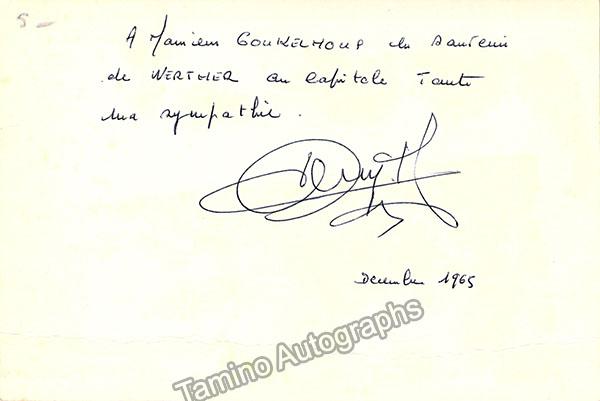 5 -
A Monsieur GOUKELHOUP en souvenir
de WERTHER au Capitole Toute
ma sympathie .
Decembre 1965
Tamino Autographs